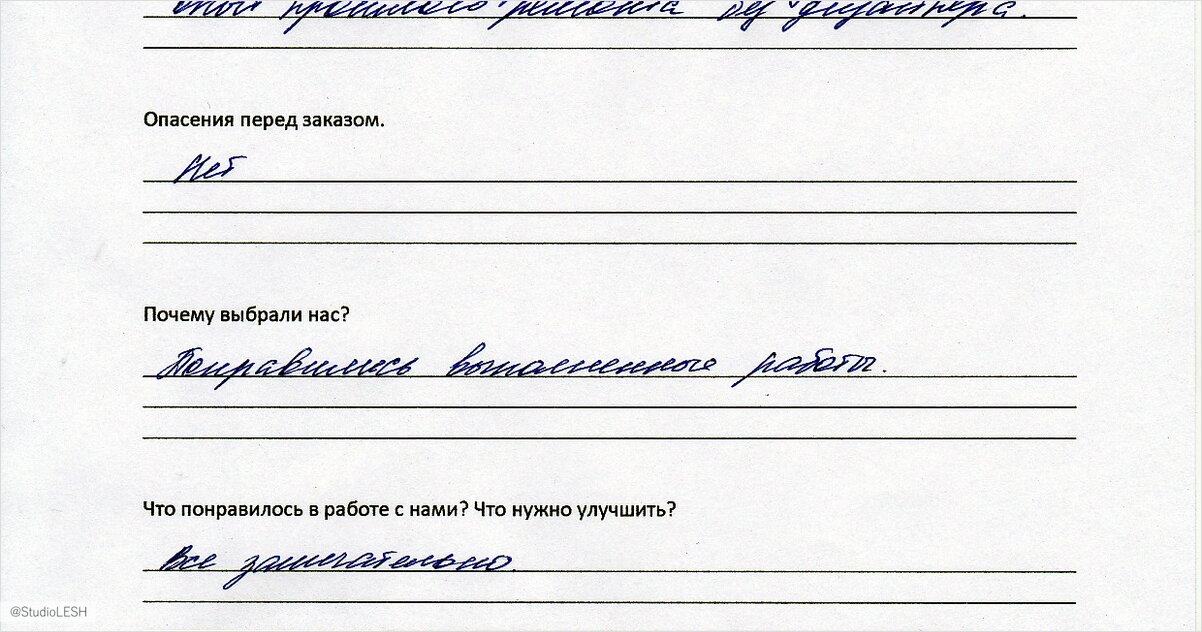 опыт прошлого ремонта без дизайнера.
Опасения перед заказом.
Нет
Почему выбрали нас?
Понравились выполненные работы.
Что понравилось в работе с нами? Что нужно улучшить?
Все замечательно.
@StudioLESH